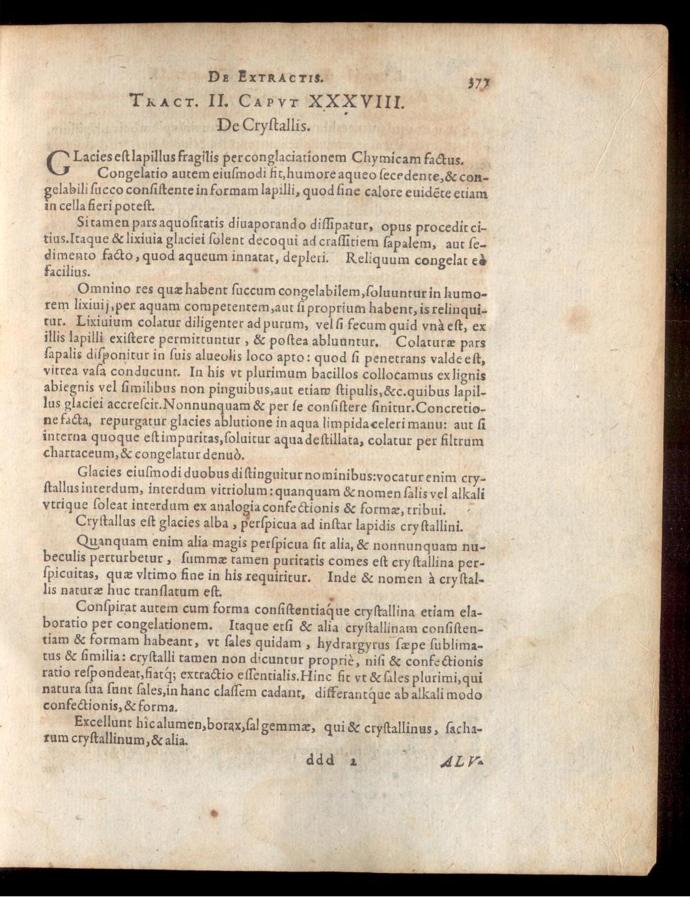 DE EXTRACTIS. 377
TRACT. II. CAPVT XXXVIII.
De Crystallis.
GLacies est lapillus fragilis per conglaciationem Chymicam factus.
Congelatio autem eiusmodi fit, humore aqueo secedente, & con-
gelabili succo consistente in formam lapilli, quod sine calore euidēte etiam
in cella fieri potest.
Si tamen pars aquositatis diuaporando dissipatur, opus procedit ci-
tius. Itaque & lixiuia glaciei solent decoqui ad crassitiem sapalem, aut se-
dimento facto, quod aqueum innatat, depleri. Reliquum congelat eò
facilius.
Omnino res quæ habent succum congelabilem, soluuntur in humo-
rem lixiuij, per aquam competentem, aut si proprium habent, is relinqui-
tur. Lixiuium colatur diligenter ad purum, vel si fecum quid vnà est, ex
illis lapilli existere permittuntur, & postea abluuntur. Colaturæ pars
sapalis disponitur in suis alueolis loco apto: quod si penetrans valde est,
vitrea vasa conducunt. In his vt plurimum bacillos collocamus ex lignis
abiegnis vel similibus non pinguibus, aut etiam stipulis, &c. quibus lapil-
lus glaciei accrescit. Nonnunquam & per se consistere sinitur. Concretio-
ne facta, repurgatur glacies ablutione in aqua limpida celeri manu: aut si
interna quoque est impuritas, soluitur aqua destillata, colatur per filtrum
chartaceum, & congelatur denuò.
Glacies eiusmodi duobus distinguitur nominibus: vocatur enim cry-
stallus interdum, interdum vitriolum: quanquam & nomen salis vel alkali
vtrique soleat interdum ex analogia confectionis & formæ, tribui.
Crystallus est glacies alba, perspicua ad instar lapidis crystallini.
Quanquam enim alia magis perspicua sit alia, & nonnunquam nu-
beculis perturbetur, summæ tamen puritatis comes est crystallina per-
spicuitas, quæ vltimo fine in his requiritur. Inde & nomen à crystal-
lis naturæ huc translatum est.
Conspirat autem cum forma consistentiaque crystallina etiam ela-
boratio per congelationem. Itaque etsi & alia crystallinam consisten-
tiam & formam habeant, vt sales quidam, hydrargyrus sæpe sublima-
tus & similia: crystalli tamen non dicuntur propriè, nisi & confectionis
ratio respondeat, fiatq; extractio essentialis. Hinc fit vt & sales plurimi, qui
natura sua sunt sales, in hanc classem cadant, differantque ab alkali modo
confectionis, & forma.
Excellunt hic alumen, borax, sal gemmæ, qui & crystallinus, sacha-
rum crystallinum, & alia.
ddd 2 ALV-